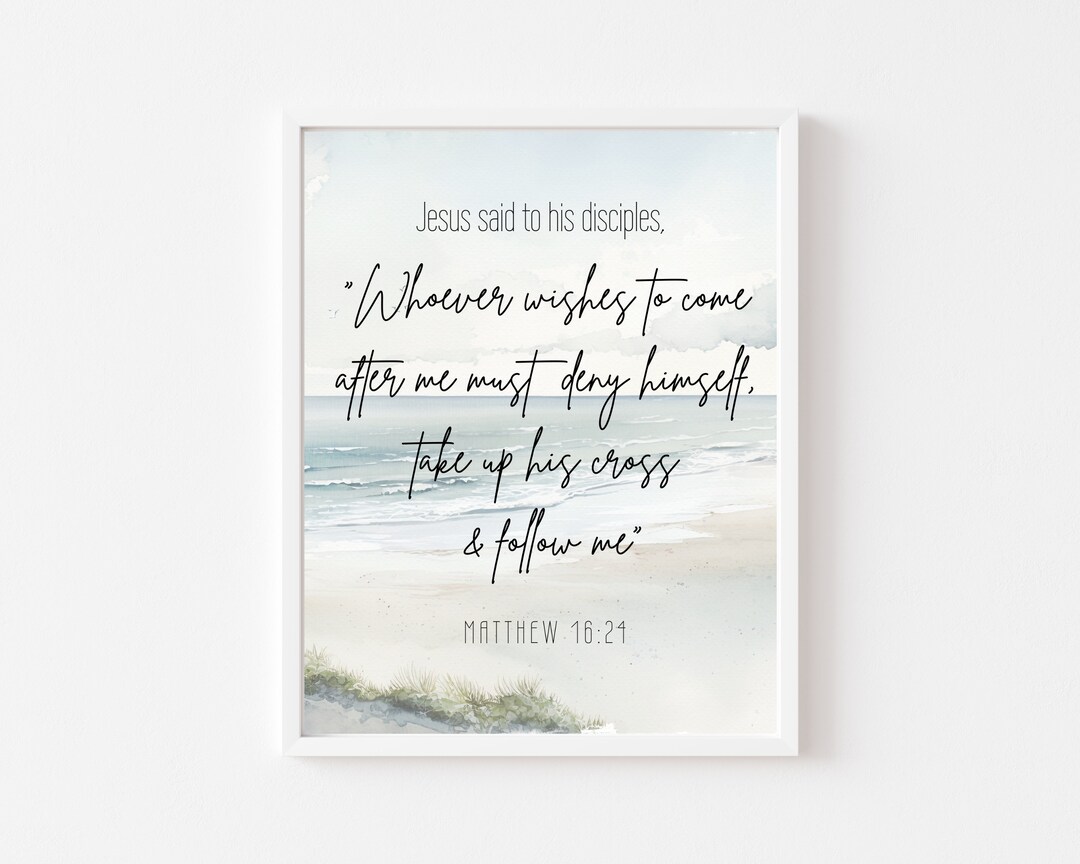 Jesus said to his disciples,
"Whoever wishes to come
after me must deny himself,
take up his cross
& follow me"
MATTHEW 16:24